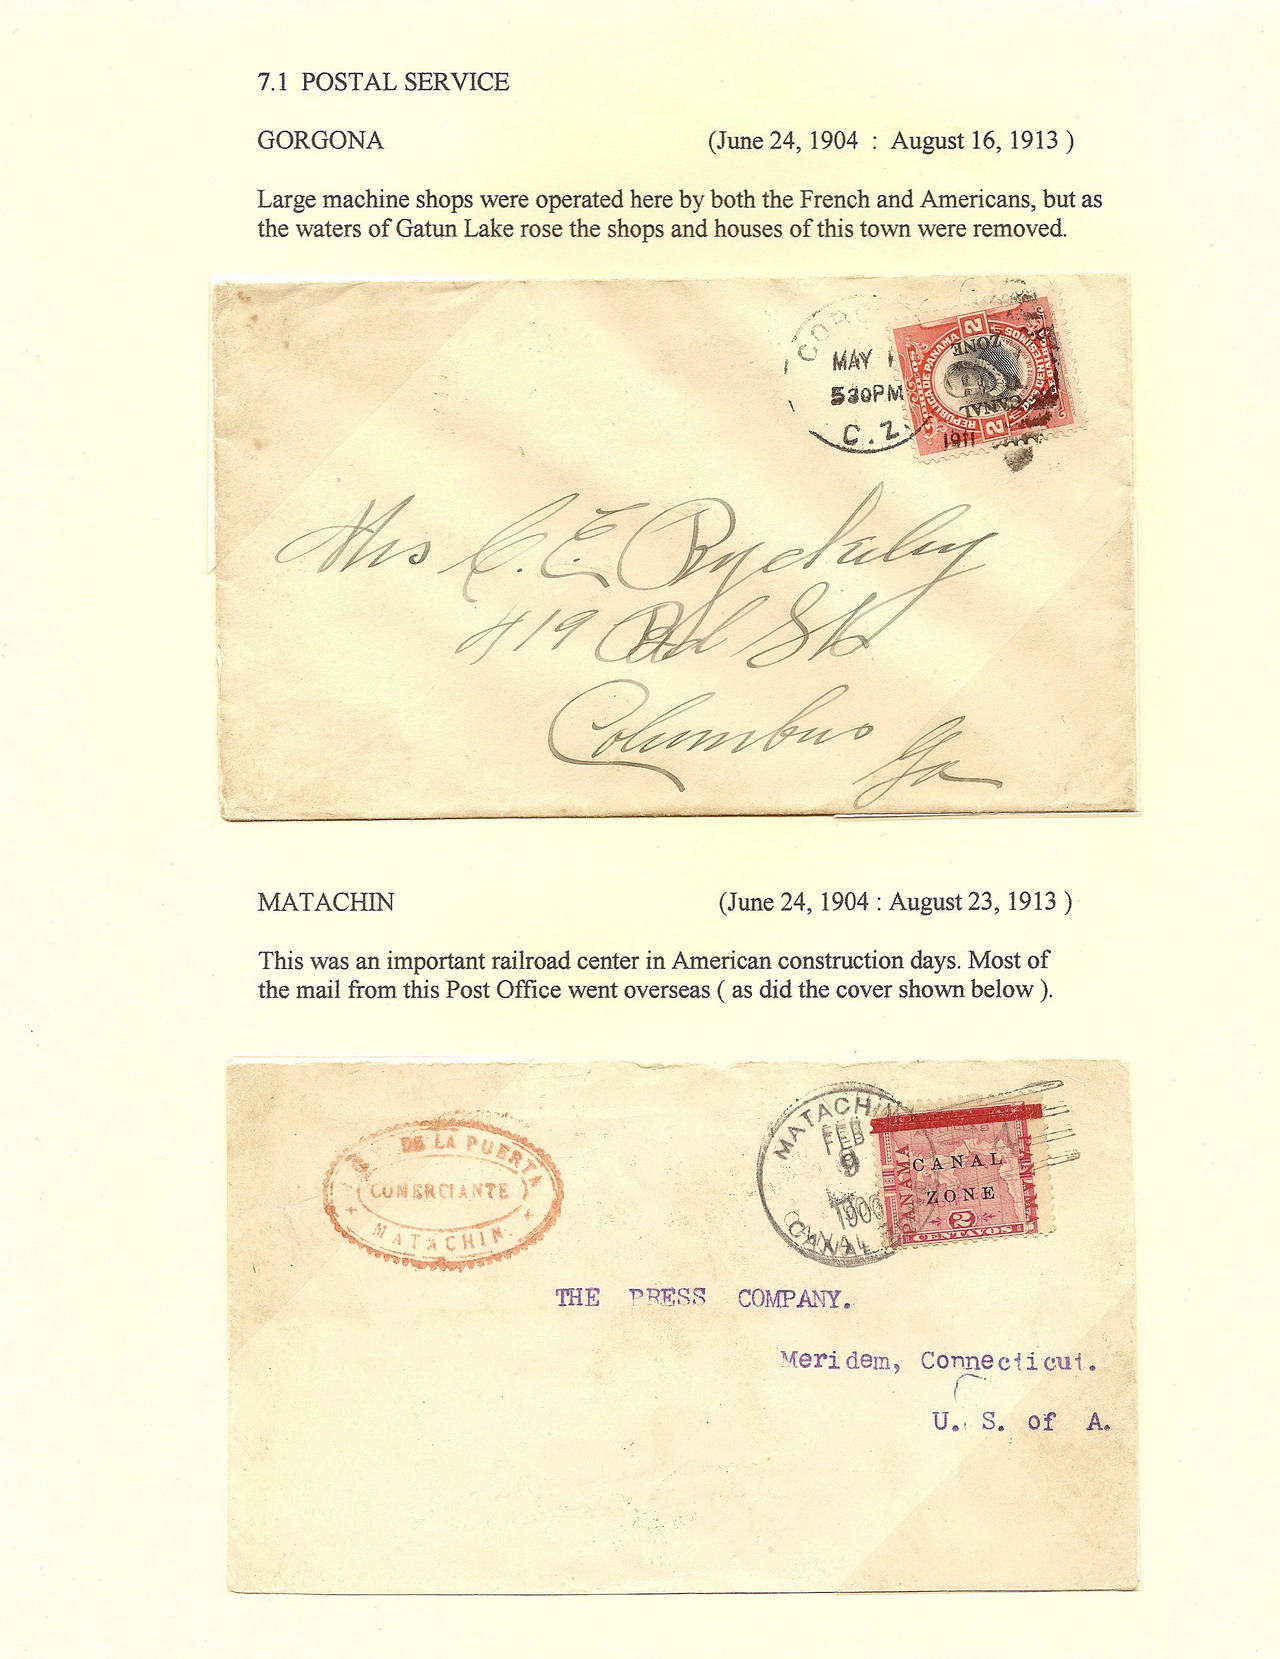 7.1 POSTAL SERVICE
GORGONA (June 24, 1904 : August 16, 1913 )
Large machine shops were operated here by both the French and Americans, but as
the waters of Gatun Lake rose the shops and houses of this town were removed.
MAY 1
530PM
C. Z.
1911
REPUBLICA DE PANAMA
2
2
CANAL
ZONE
Mrs C. E. Ryckeley
419 Bd St
Columbus
Ga
MATACHIN (June 24, 1904 : August 23, 1913 )
This was an important railroad center in American construction days. Most of
the mail from this Post Office went overseas ( as did the cover shown below ).
DE LA PUERTA
COMERCIANTE
MATACHIN.
MATACHIN
FEB
9
CANAL
PANAMA
CANAL
ZONE
2
CENTAVOS
THE PRESS COMPANY.
Meridem, Connecticut.
U. S. of A.